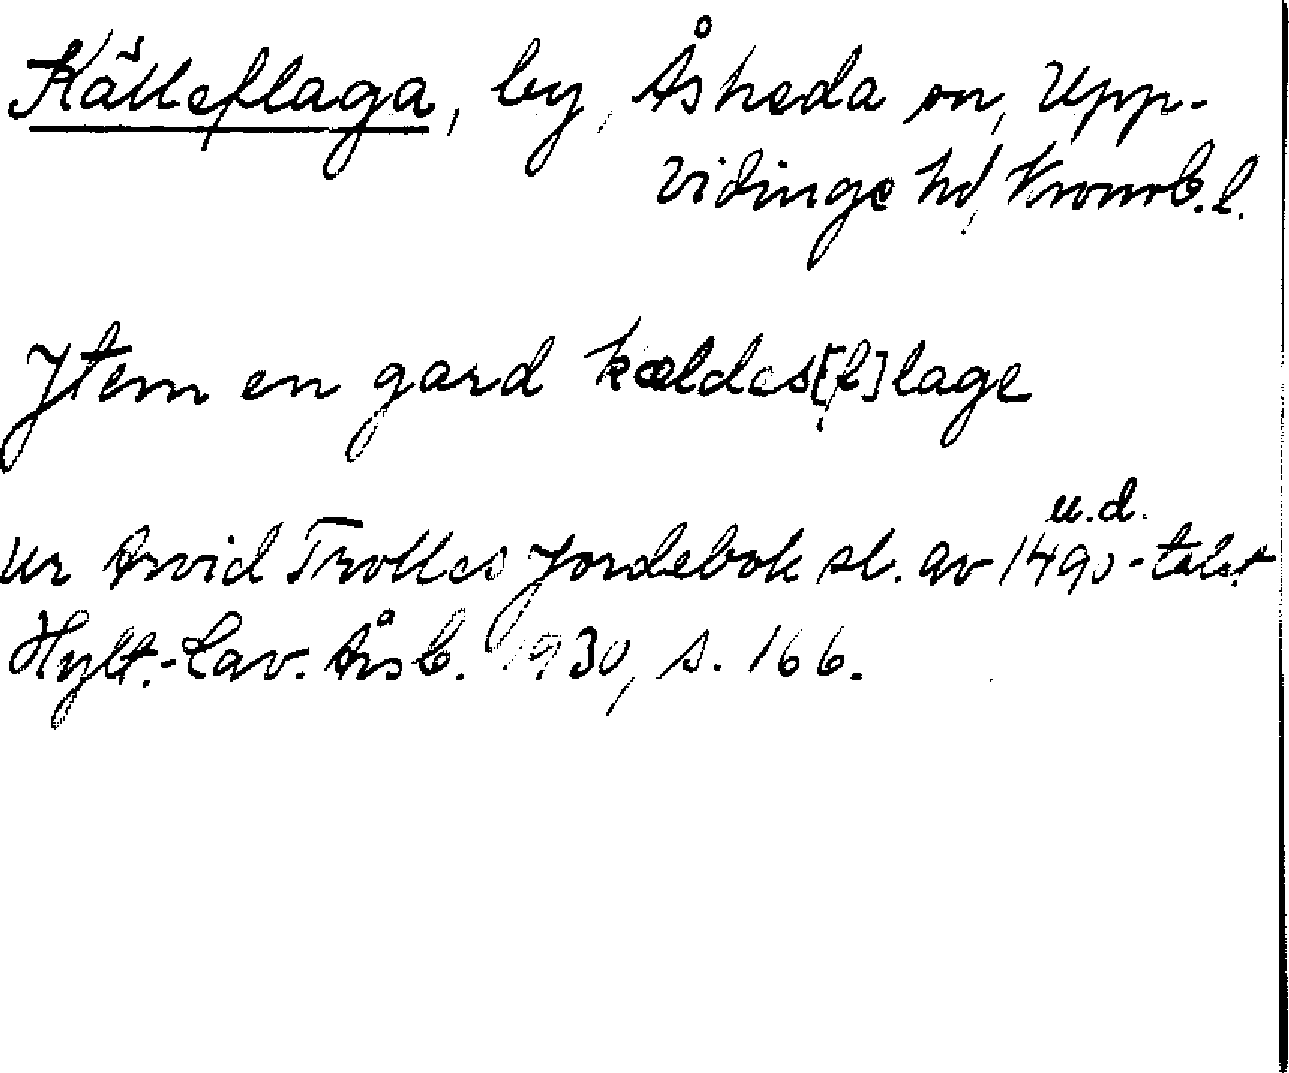 Källeflaga, by, Åsheda sn, Upp-
vidinge hd, Kronob. l.
Jtem en gard kældes[f]lage
u.d.
Ur Arvid Trolles Jordebok sl. av 1490-talet
Hylt.-Cav. Årsb. 1930, s. 166.